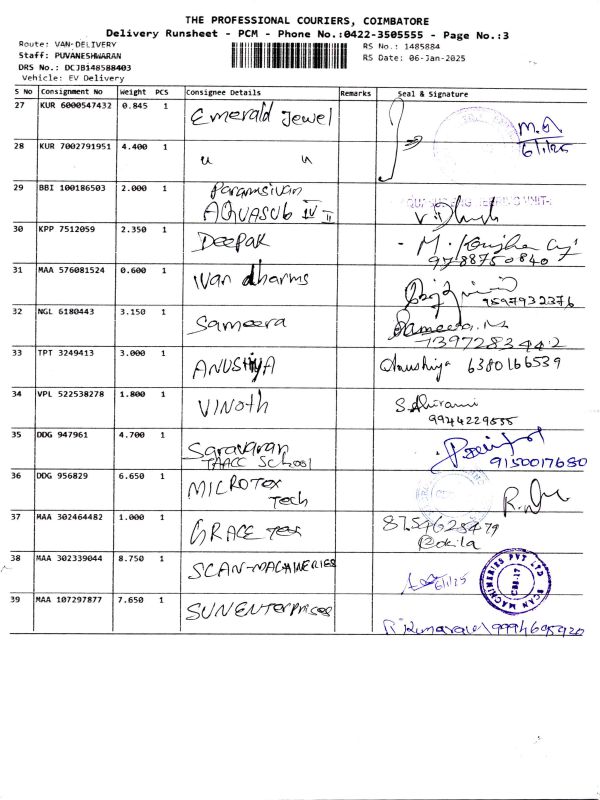 THE PROFESSIONAL COURIERS, COIMBATORE
Delivery Runsheet - PCM - Phone No.:0422-3505555 - Page No.:3
Route: VAN-DELIVERY
Staff: PUVANESHWARAN
DRS No.: DCJB148588403
Vehicle: EV Delivery
RS No.: 1485884
RS Date: 06-Jan-2025
S No Consignment No Weight PCS Consignee Details Remarks Seal & Signature
27 KUR 6000547432 0.845 1 Emerald Jewel
6/1/25
28 KUR 7002791951 4.400 1 " "
29 BBI 100186503 2.000 1 Paramsivan
AQUASUB IV - II
30 KPP 7512059 2.350 1 DEEPAK
9788750840
31 MAA 576081524 0.600 1 Ivan dharms
9597932376
32 NGL 6180443 3.150 1 Sameera Sameera
7397283442
33 TPT 3249413 3.000 1 ANUSHIYA Anushiya 6380166539
34 VPL 522538278 1.800 1 VINOTH S. Abirami
9944229555
35 DDG 947961 4.700 1 Saravanan
School
9150017680
36 DDG 956829 6.650 1 MICROTEX
Tech
37 MAA 302464482 1.000 1 GRACE Tex 8754628479
Kokila
38 MAA 302339044 8.750 1 SCAN-MACHINERIES 6/1/25
SCAN MACHINERIES PVT LTD
CBE-17
39 MAA 107297877 7.650 1 SUN ENTERPRISES